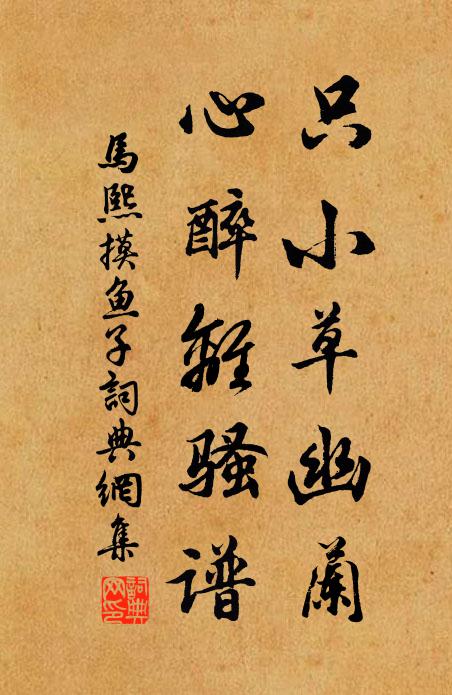 只小草幽蘭
心醉離骚谱
馬熙摸鱼子詞典網集
詞典
网印